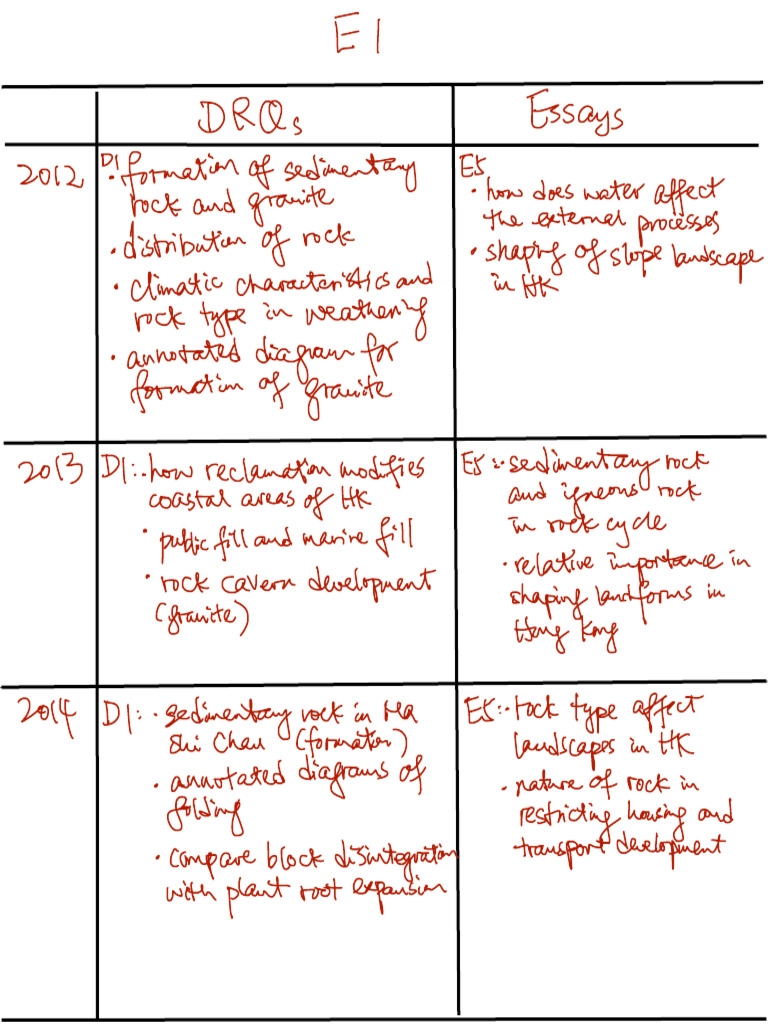 E1
DRQs
Essays
2012
D1 · formation of sedimentary
rock and granite
· distribution of rock
· climatic characteristics and
rock type in weathering
· annotated diagram for
formation of granite
E5
· how does water affect
the external processes
· shaping of slope landscape
in HK
2013
D1: · how reclamation modifies
coastal areas of HK
· public fill and marine fill
· rock cavern development
(granite)
E5: · sedimentary rock
and igneous rock
in rock cycle
· relative importance in
shaping landforms in
Hong Kong
2014
D1: · sedimentary rock in Ma
Shi Chau (formation)
· annotated diagrams of
folding
· compare block disintegration
with plant root expansion
E5: · rock type affect
landscapes in HK
· nature of rock in
restricting housing and
transport development